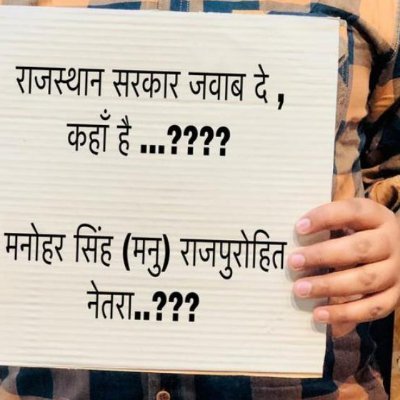 राजस्थान सरकार जवाब दे ,
कहाँ है ...????
मनोहर सिंह (मनु) राजपुरोहित
नेतरा..???